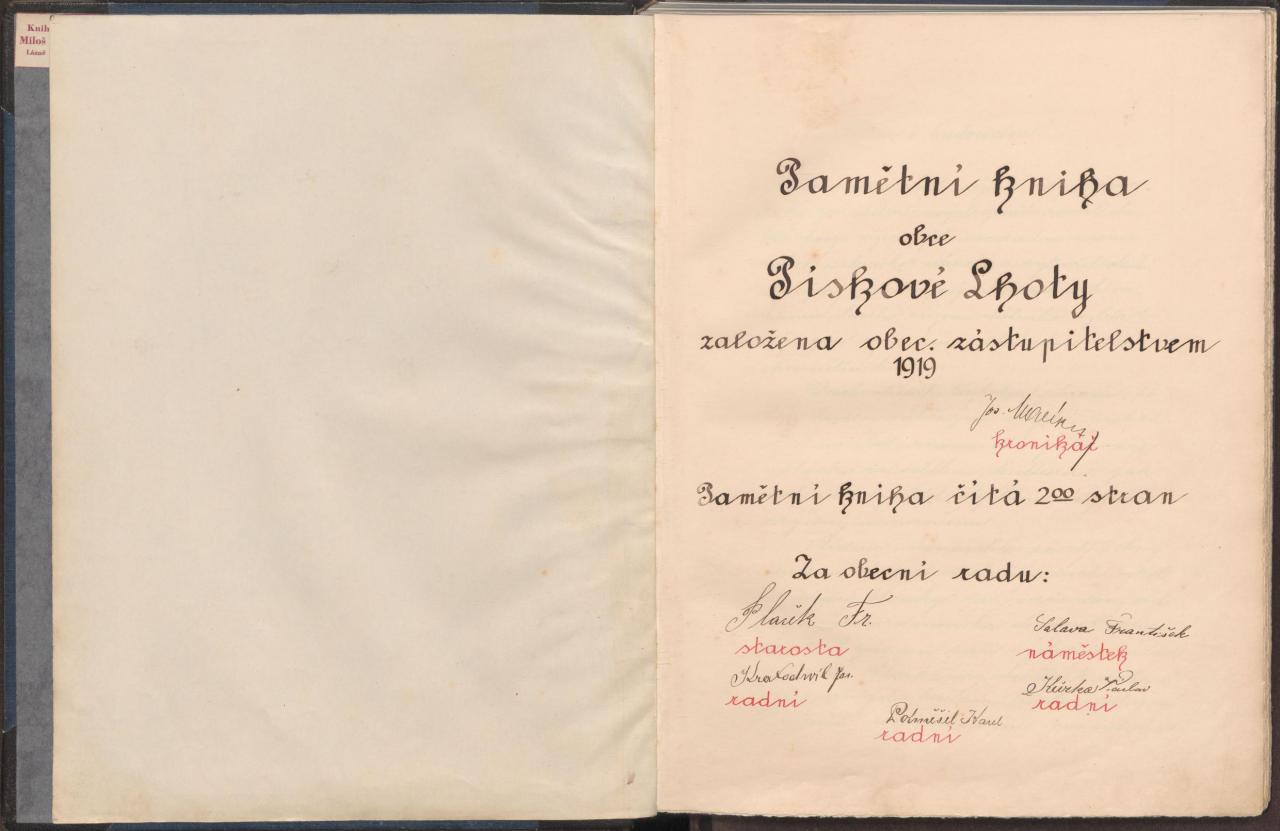 Knih
Miloš
Lázně
Pamětní kniha
obce
Pískové Lhoty
založena obec. zástupitelstvem
1919
Jos.
kronikář
Pamětní kniha čítá 200 stran
Za obecní radu:
Fr.
starosta
Salava František
náměstek
Kratochvíl Jos.
radní
Kůrka Václav
radní
Podměšil Karel
radní